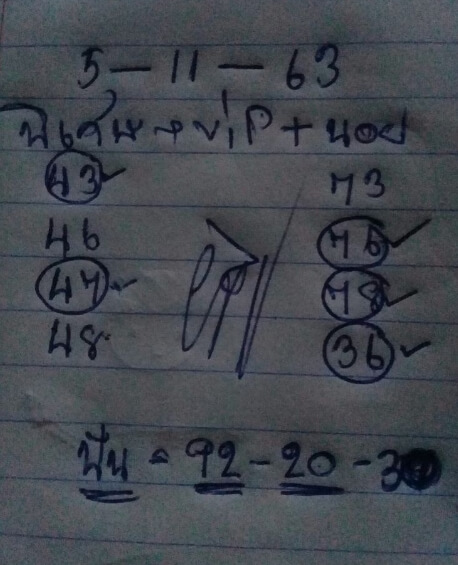 5 - 11 - 63
พิเศษ → VIP + นอย
43 ✓ 73
46 76 ✓
47 ✓ 78 ✓
48 36 ✓
ฟัน = 92 - 20 - 30